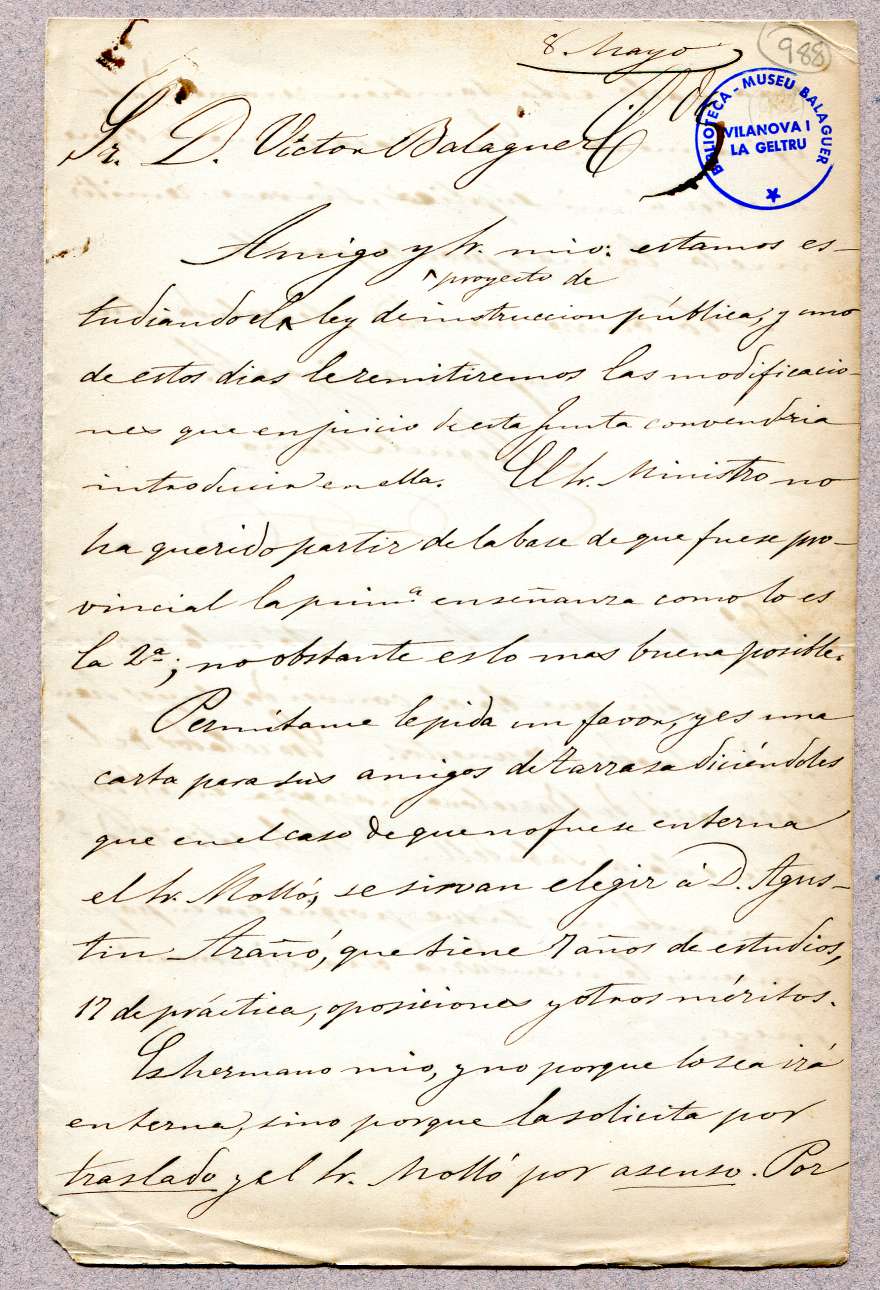 988
8 Mayo
BIBLIOTECA - MUSEU BALAGUER
VILANOVA I
LA GELTRU
Sr. D. Victor Balaguer
Amigo y Sr. mio: estamos es-
proyecto de
tudiando el ley de instruccion pública, y uno
de estos dias le remitiremos las modificacio-
nes que en juicio de esta Junta convendria
introducir en ella. El Sr. Ministro no
ha querido partir de la base de que fuese pro-
vincial la prim.ª enseñanza como lo es
la 2.ª; no obstante es lo mas buena posible.
Permítame le pida un favor, y es una
carta para sus amigos de Tarrasa diciéndoles
que en el caso de que no fuese en terna
el Sr. Molló, se sirvan elegir á D. Agus-
tin Arañó, que tiene 7 años de estudios,
17 de práctica, oposiciones y otros méritos.
Es hermano mio, y no porque lo sea irá
en terna, sino porque la solicita por
traslado y el Sr. Molló por asenso. Por